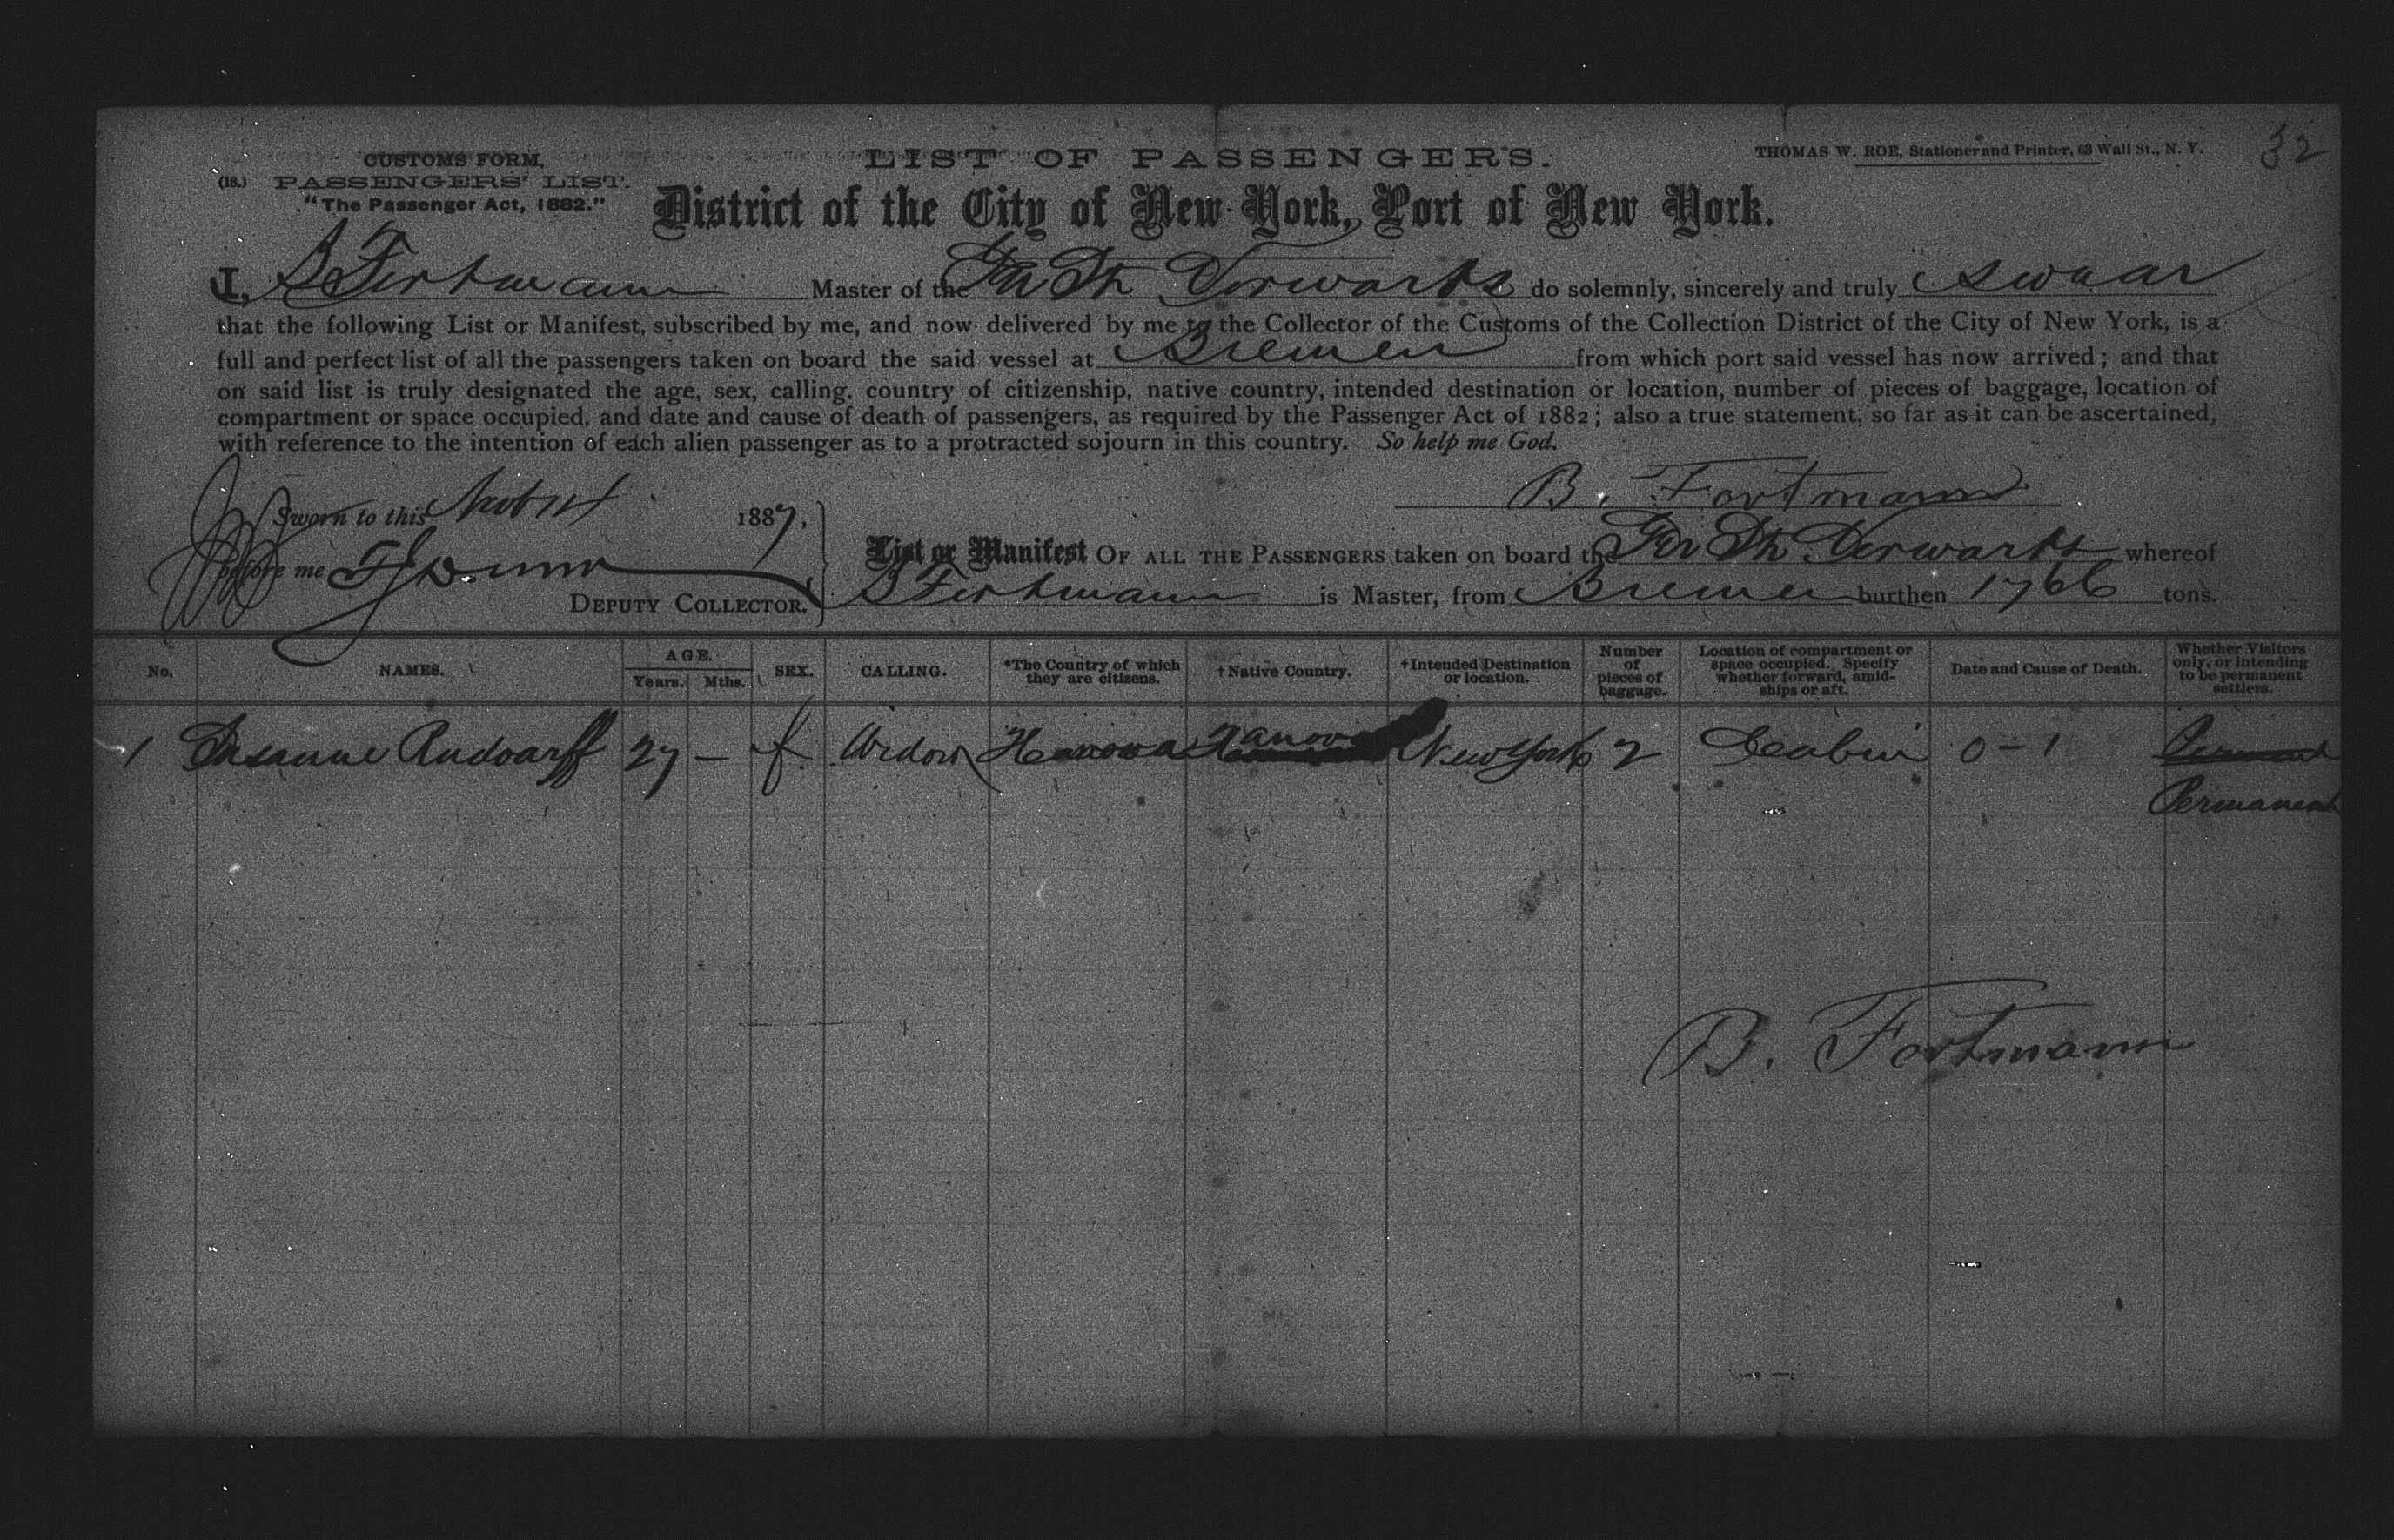 32
CUSTOMS FORM,
(18.) PASSENGERS' LIST.
"The Passenger Act, 1882."
LIST OF PASSENGERS.
THOMAS W. ROE, Stationer and Printer, 63 Wall St., N. Y.
District of the City of New York, Port of New York.
I, B Fortmann Master of the do solemnly, sincerely and truly swear
that the following List or Manifest, subscribed by me, and now delivered by me to the Collector of the Customs of the Collection District of the City of New York, is a
full and perfect list of all the passengers taken on board the said vessel at Bremen from which port said vessel has now arrived; and that
on said list is truly designated the age, sex, calling, country of citizenship, native country, intended destination or location, number of pieces of baggage, location of
compartment or space occupied, and date and cause of death of passengers, as required by the Passenger Act of 1882; also a true statement, so far as it can be ascertained,
with reference to the intention of each alien passenger as to a protracted sojourn in this country. So help me God.
B. Fortmann
Sworn to this 1887,
before me
DEPUTY COLLECTOR.
List or Manifest OF ALL THE PASSENGERS taken on board the whereof
B Fortmann is Master, from Bremen burthen 1766 tons.
No. NAMES. AGE. Years. Mths. SEX. CALLING. *The Country of which they are citizens. †Native Country. †Intended Destination or location. Number of pieces of baggage. Location of compartment or space occupied. Specify whether forward, amidships or aft. Date and Cause of Death. Whether Visitors only, or intending to be permanent settlers.
1 Susanne Rudoarff 27 — f. Widow Hanova Hanova New York 2 Cabin 0-1
Permanent
B. Fortmann